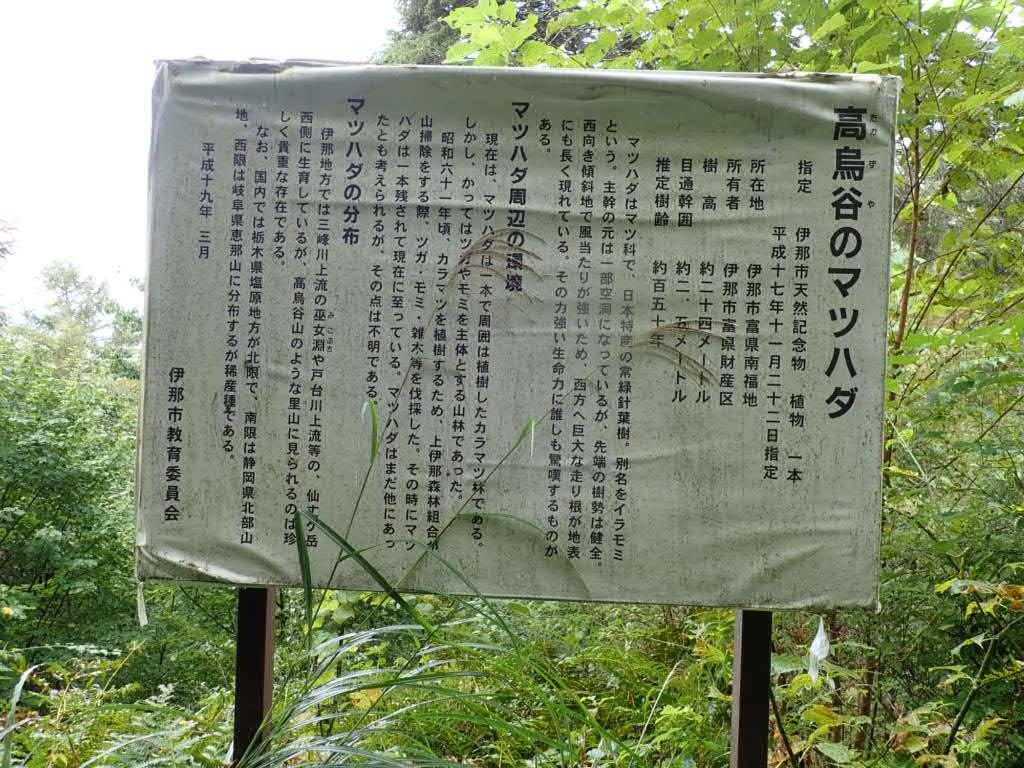 高烏谷のマツハダ
たかずや
指定　伊那市天然記念物　植物　一本
平成十七年十一月二十二日指定
所在地　伊那市富県南福地
所有者　伊那市富県財産区
樹高　約二十四メートル
目通幹囲　約二．五メートル
推定樹齢　約百五十年
マツハダはマツ科で、日本特産の常緑針葉樹。別名をイラモミ
という。主幹の元は一部空洞になっているが、先端の樹勢は健全。
西向き傾斜地で風当たりが強いため、西方へ巨大な走り根が地表
にも長く現れている。その力強い生命力に誰しも驚嘆するものが
ある。
マツハダ周辺の環境
現在は、マツハダは一本で周囲は植樹したカラマツ林である。
しかし、かってはツガやモミを主体とする山林であった。
昭和六十一年頃、カラマツを植樹するため、上伊那森林組合が
山掃除をする際、ツガ・モミ・雑木等を伐採した。その時にマツ
ハダは一本残されて現在に至っている。マツハダはまだ他にあっ
たとも考えられるが、その点は不明である。
マツハダの分布
伊那地方では三峰川上流の巫女淵や戸台川上流等の、仙丈ケ岳
みこぶち
西側に生育しているが、高烏谷山のような里山に見られるのは珍
しく貴重な存在である。
なお、国内では栃木県塩原地方が北限で、南限は静岡県北部山
地、西限は岐阜県恵那山に分布するが稀産種である。
平成十九年　三月
伊那市教育委員会